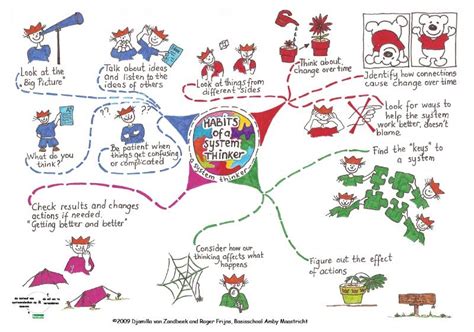 HABITS
of a
System
THINKER
a system thinker
Look at the
"Big Picture"
Talk about ideas
and listen to the
ideas of others
Look at things from
different "sides"
Think about
change over time
Identify how connections
cause change over time
What do you
think?
??
??
Be patient when
things get confusing
or complicated
Look for ways to
help the system
work better, doesn't
blame.
Find the "keys" to
a system
Check results and changes
actions if needed.
"Getting better and better"
Consider how our
thinking affects what
happens
Figure out the effect
of actions
©2009 Djamilla van Zandbeek and Roger Frijns, Basisschool Amby Maastricht